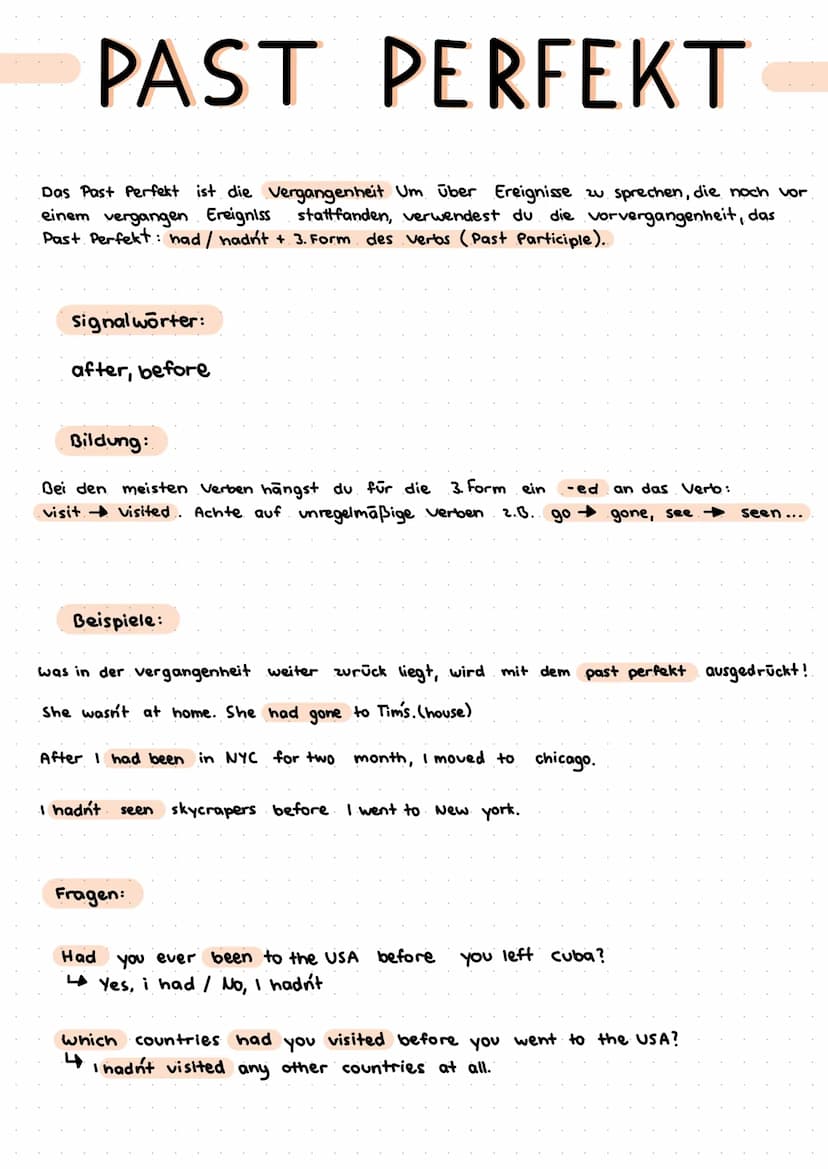 PAST PERFEKT
Das Past Perfekt ist die Vergangenheit Um über Ereignisse zu sprechen, die noch vor
einem vergangen Ereigniss stattfanden, verwendest du die vorvergangenheit, das
Past Perfekt: had / hadn't + 3. Form des Verbs (Past Participle).
Signalwörter:
after, before
Bildung:
Bei den meisten Verben hängst du für die 3. Form ein -ed an das Verb:
visit → visited. Achte auf unregelmäßige Verben z.B. go → gone, see → seen...
Beispiele:
Was in der Vergangenheit weiter zurück liegt, wird mit dem past perfekt ausgedrückt!
She wasn't at home. She had gone to Tim's.(house)
After I had been in NYC for two month, I moved to chicago.
I hadn't seen skycrapers before I went to New york.
Fragen:
Had you ever been to the USA before you left cuba?
↳ Yes, i had / No, I hadn't
Which countries had you visited before you went to the USA?
↳ I hadn't visited any other countries at all.